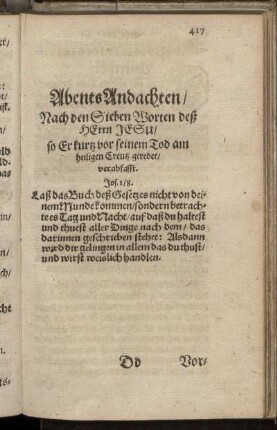 417
AbentsAndachten/
Nach den Sieben Worten deß
HErrn JESU/
so Er kurtz vor seinem Tod am
heiligen Creutz geredet/
verabfasst.
Jos. 1/8.
Laß das Buch deß Gesetzes nicht von dei-
nem Munde kommen/sondern betrach-
te es Tag und Nacht/auf daß du haltest
und thuest aller Dinge nach dem/das
darinnen geschrieben stehet: Alsdann
wird dir gelingen in allem das du thust/
und wirst weislich handlen.
Dd Vor-